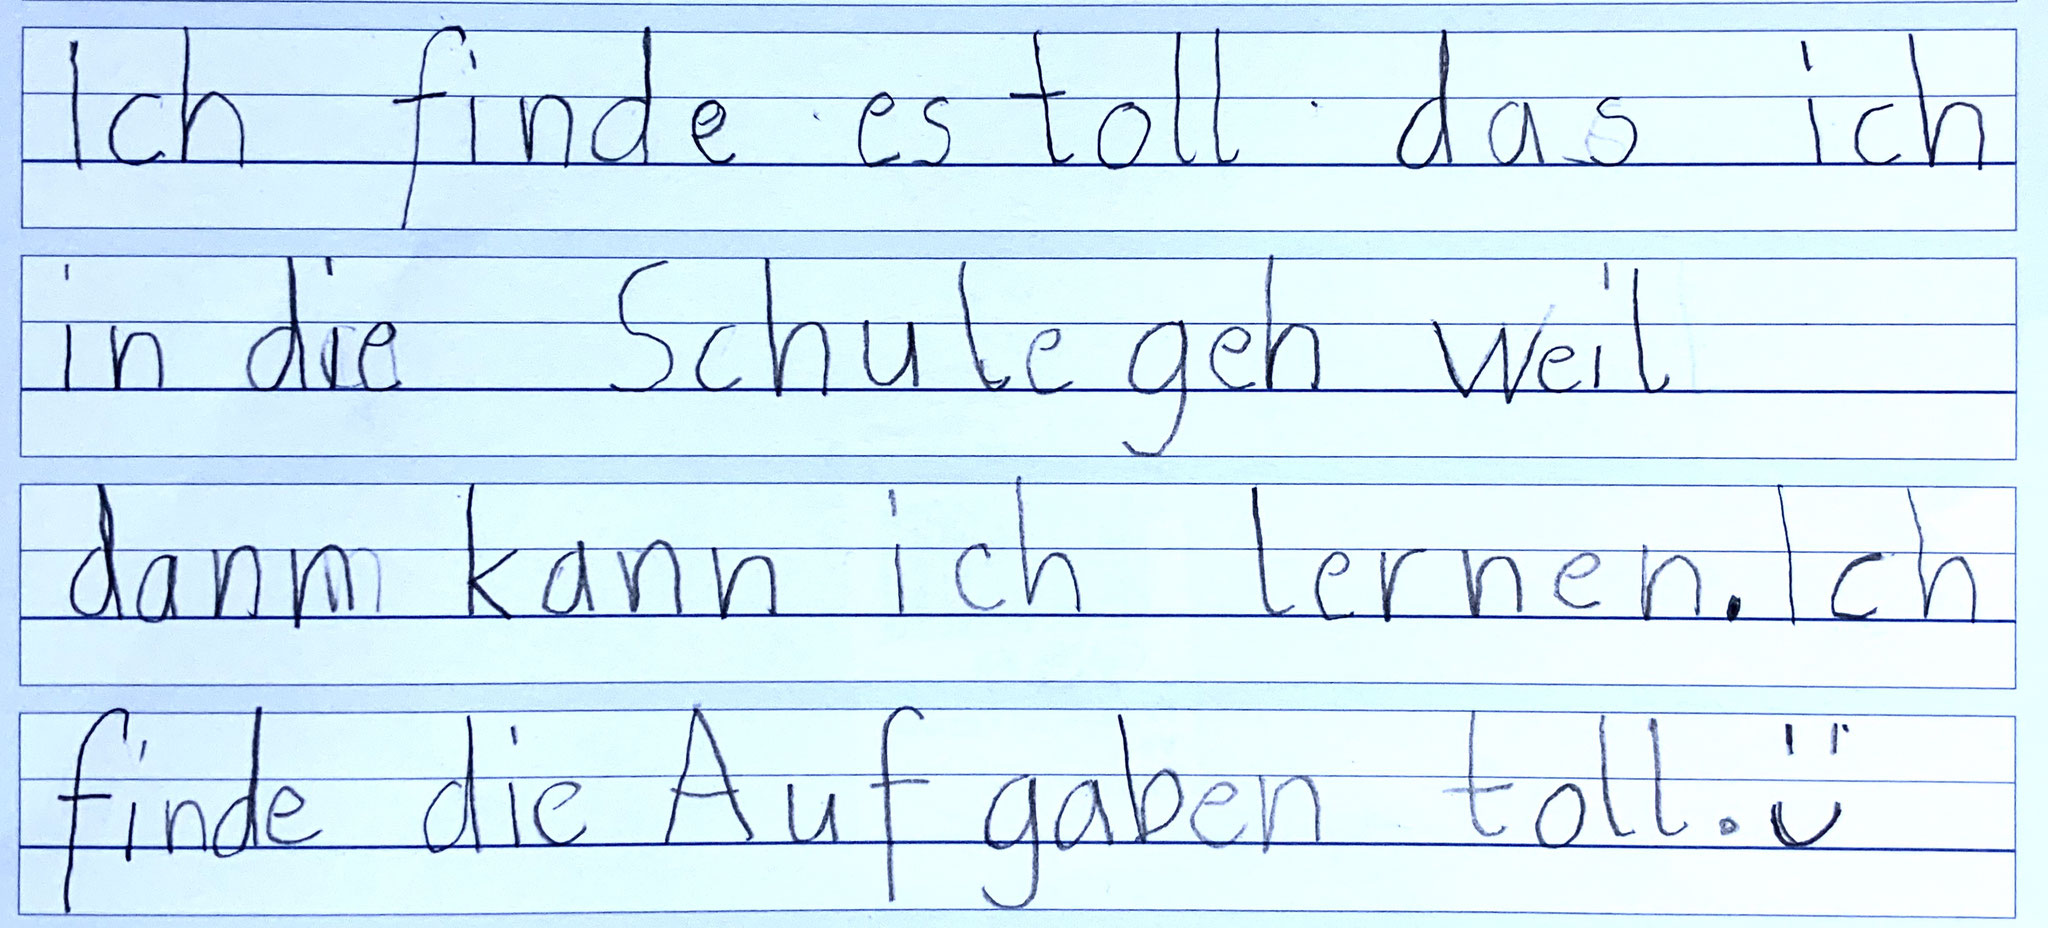 Ich finde es toll das ich
in die Schule geh weil
danm kann ich lernen. Ich
finde die Aufgaben toll. Ü